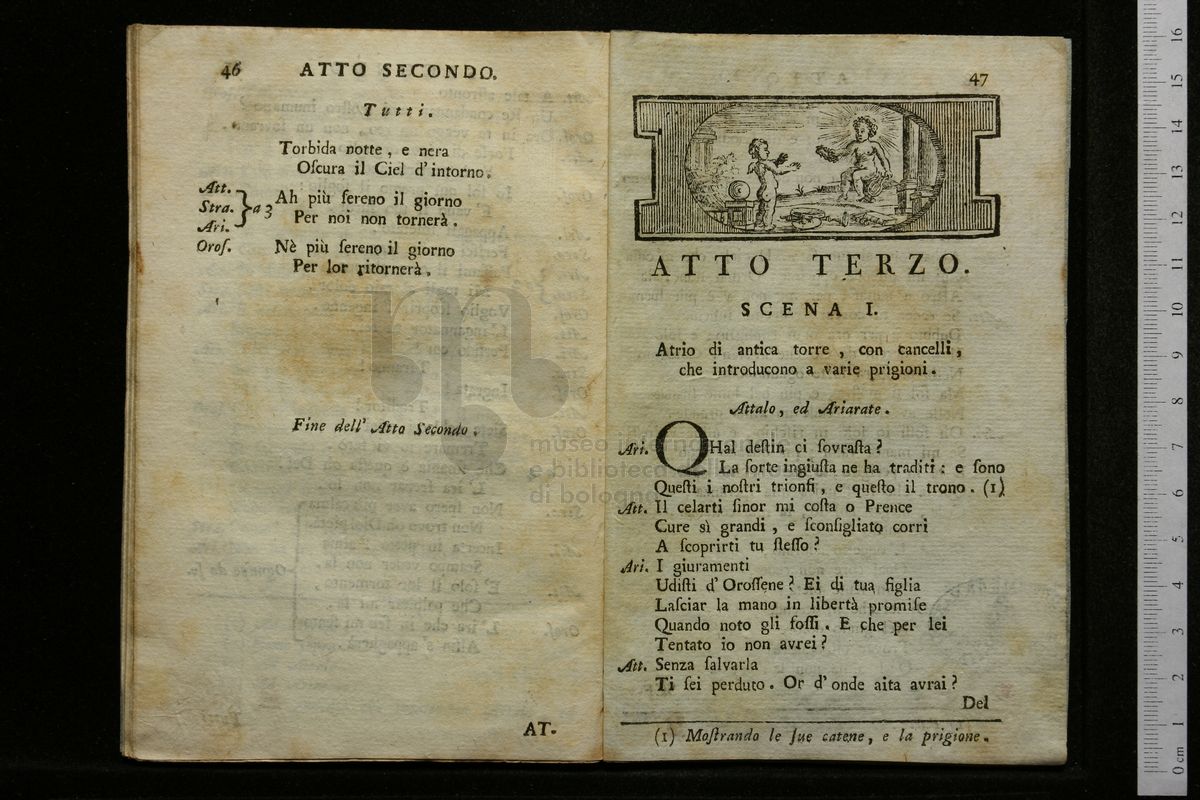 46 ATTO SECONDO.
Tutti.
Torbida notte, e nera
Oſcura il Ciel d'intorno.
Att.
Stra. } a 3 Ah più ſereno il giorno
Ari. Per noi non tornerà.
Oroſ. Nè più ſereno il giorno
Per lor ritornerà.
Fine dell' Atto Secondo.
AT.
47
ATTO TERZO.
SCENA I.
Atrio di antica torre, con cancelli,
che introducono a varie prigioni.
Attalo, ed Ariarate.
Ari. QUal deſtin ci ſovraſta?
La ſorte ingiuſta ne ha traditi: e ſono
Queſti i noſtri trionfi, e queſto il trono. (1)
Att. Il celarti ſinor mi coſta o Prence
Cure sì grandi, e ſconſigliato corri
A ſcoprirti tu ſteſſo?
Ari. I giuramenti
Udiſti d'Oroſſene? Ei di tua figlia
Laſciar la mano in libertà promiſe
Quando noto gli foſſi. E che per lei
Tentato io non avrei?
Att. Senza ſalvarla
Ti ſei perduto. Or d'onde aita avrai?
Del
(1) Moſtrando le ſue catene, e la prigione.
museo interna
e biblioteca della
di bologna
0 cm 1 2 3 4 5 6 7 8 9 10 11 12 13 14 15 16